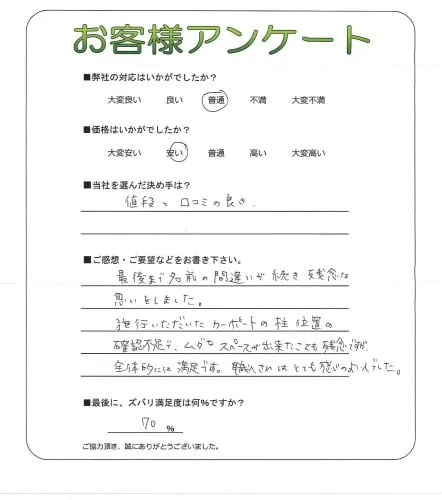 お客様アンケート
■弊社の対応はいかがでしたか?
大変良い 良い 普通 不満 大変不満
■価格はいかがでしたか?
大変安い 安い 普通 高い 大変高い
■当社を選んだ決め手は?
値段と口コミの良さ.
■ご感想・ご要望などをお書き下さい。
最後まで名前の間違いが続き残念な
思いをしました。
施行いただいたカーポートの柱位置の
確認不足で、ムダなスペースが出来たことも残念ですが
全体的には満足です。職人さんはとても感じのよい人でした。
■最後に、ズバリ満足度は何%ですか?
70 %
ご協力頂き、誠にありがとうございました。